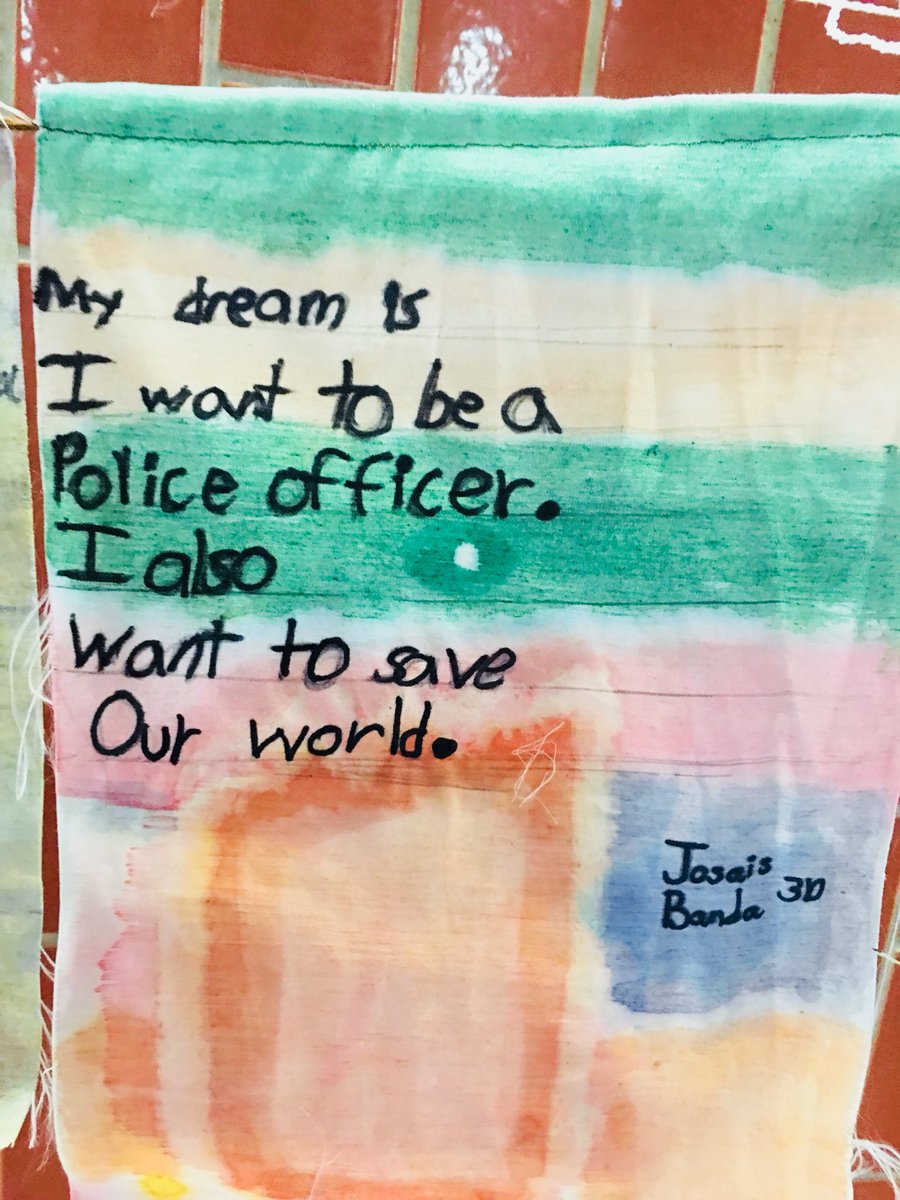 My dream is
I want to be a
Police officer.
I also
Want to save
Our world.
Josais
Banda 3D